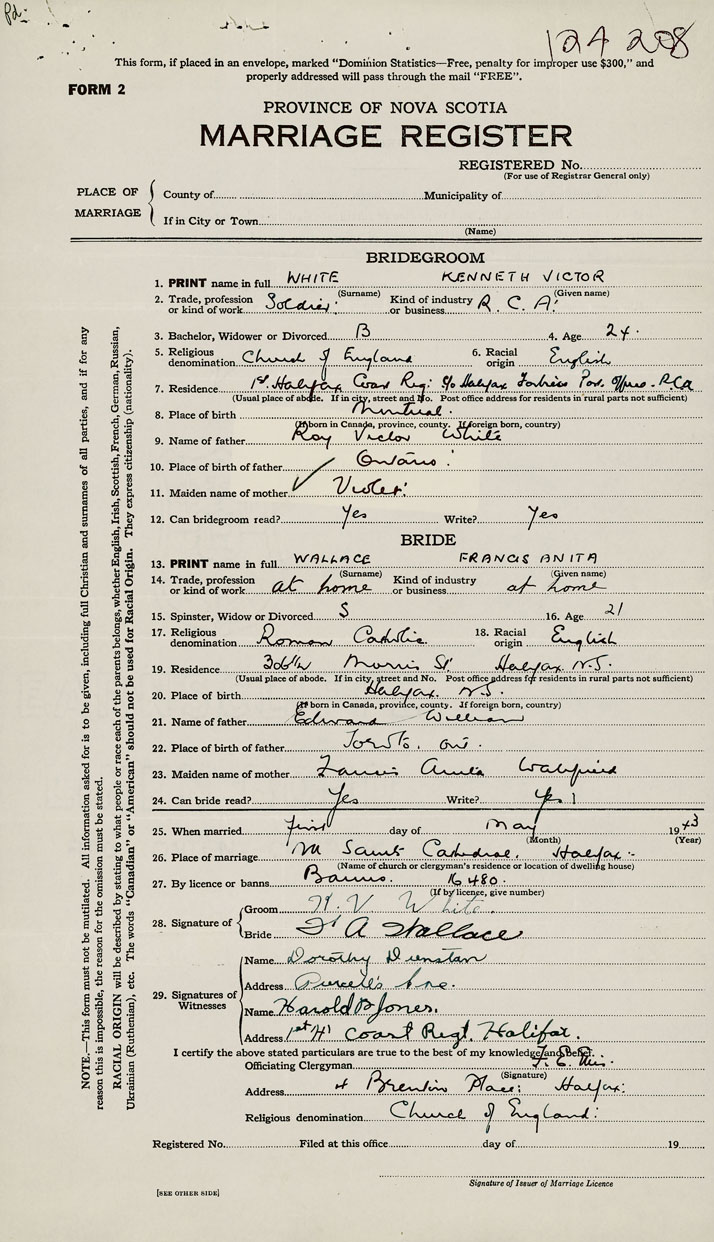 Pd-
124 208
This form, if placed in an envelope, marked "Dominion Statistics—Free, penalty for improper use $300," and
properly addressed will pass through the mail "FREE".
FORM 2
PROVINCE OF NOVA SCOTIA
MARRIAGE REGISTER
REGISTERED No.
(For use of Registrar General only)
PLACE OF MARRIAGE
County of Municipality of
If in City or Town
(Name)
BRIDEGROOM
1. PRINT name in full WHITE KENNETH VICTOR
(Surname) (Given name)
2. Trade, profession or kind of work Soldier Kind of industry or business R. C. A.
3. Bachelor, Widower or Divorced B 4. Age 24.
5. Religious denomination Church of England 6. Racial origin English
7. Residence 1st Halifax Coast Reg: c/o Halifax Fortress Pos. Office - RCA
(Usual place of abode. If in city, street and No. Post office address for residents in rural parts not sufficient)
8. Place of birth Montreal.
(If born in Canada, province, county. If foreign born, country)
9. Name of father Roy Victor White
10. Place of birth of father Ontario
11. Maiden name of mother Violet
12. Can bridegroom read? Yes Write? Yes
BRIDE
13. PRINT name in full WALLACE FRANCIS ANITA
(Surname) (Given name)
14. Trade, profession or kind of work at home Kind of industry or business at home
15. Spinster, Widow or Divorced S 16. Age 21
17. Religious denomination Roman Catholic 18. Racial origin English
19. Residence Morris St Halifax N.S.
(Usual place of abode. If in city, street and No. Post office address for residents in rural parts not sufficient)
20. Place of birth Halifax. N.S.
(If born in Canada, province, county. If foreign born, country)
21. Name of father Edward William
22. Place of birth of father Toronto. Ont.
23. Maiden name of mother
24. Can bride read? Yes Write? Yes
25. When married first day of May 1943
(Month) (Year)
26. Place of marriage Saints Cathedral, Halifax.
(Name of church or clergyman's residence or location of dwelling house)
27. By licence or banns Banns. 16480.
(If by licence, give number)
28. Signature of
Groom K. V. White.
Bride F A Wallace
29. Signatures of Witnesses
Name Dorothy Dunstan
Address Purcell's
Name Harold B Jones.
Address 1st Coast Regt. Halifax.
I certify the above stated particulars are true to the best of my knowledge and belief.
Officiating Clergyman
(Signature)
Address 4 Brenton Place: Halifax:
Religious denomination Church of England:
Registered No. Filed at this office day of 19
Signature of Issuer of Marriage Licence
[SEE OTHER SIDE]
NOTE.—This form must not be mutilated. All information asked for is to be given, including full Christian and surnames of all parties, and if for any
reason this is impossible, the reason for the omission must be stated.
RACIAL ORIGIN will be described by stating to what people or race each of the parents belongs, whether English, Irish, Scottish, French, German, Russian,
Ukrainian (Ruthenian), etc. The words "Canadian" or "American" should not be used for Racial Origin. They express citizenship (nationality).